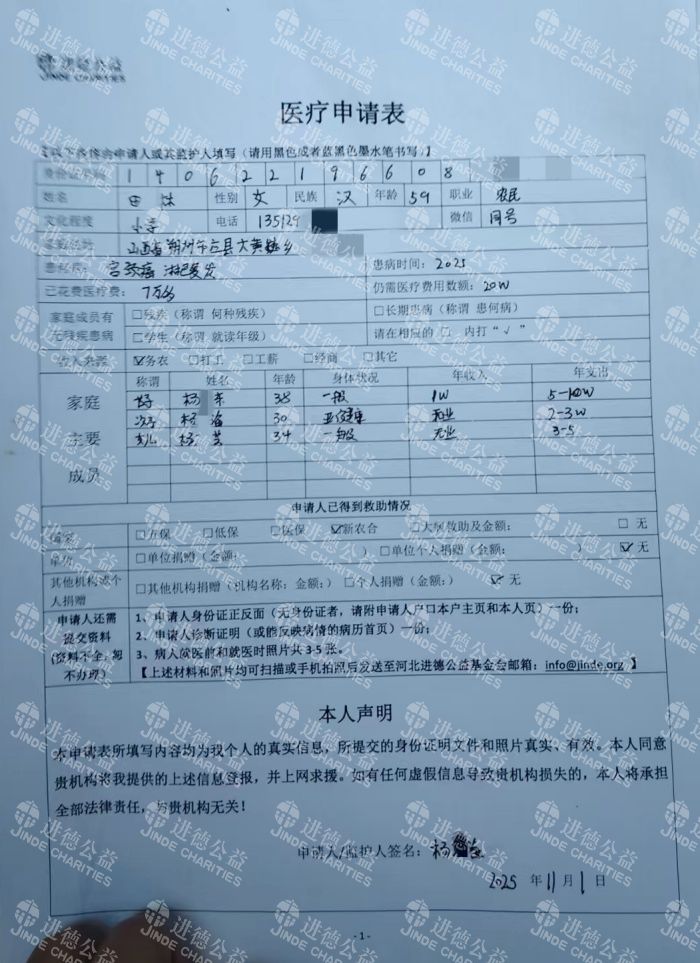 进德公益
JINDE CHARITIES
医疗申请表
【以下表格由申请人或其监护人填写（请用黑色或者蓝黑色墨水笔书写）】
身份证号码 1 4 0 6 2 2 1 9 6 6 0 8
姓名 田 性别 女 民族 汉 年龄 59 职业 农民
文化程度 小学 电话 135129 微信 同号
家庭住址 山西省朔州市应县大黄巍乡
患病 宫颈癌 淋巴复发 患病时间：2025
已花费医疗费：7万多 仍需医疗费用数额：20W
家庭成员有无残疾患病 □残疾（称谓 何种残疾） □长期患病（称谓 患何病）
□学生（称谓 就读年级） 请在相应的 □ 内打“√”
收入来源 ☑务农 □打工 □工薪 □经商 □其它
家庭主要成员 称谓 姓名 年龄 身体状况 年收入 年支出
杨 38 一般 1W 5-10W
次子 杨 30 亚健康 无业 2-3W
女儿 杨 34 一般 无业 3-5
申请人已得到救助情况
国家 □五保 □低保 □医保 ☑新农合 □大病救助及金额： □ 无
单位 □单位捐赠（金额： ） □单位个人捐赠（金额： ） ☑无
其他机构或个人捐赠 □其他机构捐赠（机构名称；金额：） □个人捐赠（金额：） ☑ 无
申请人还需提交资料（资料不全，恕不办理）
1、申请人身份证正反面（无身份证者，请附申请人户口本户主页和本人页）一份；
2、申请人诊断证明（或能反映病情的病历首页）一份；
3、病人就医前和就医时照片共 3-5 张。
【上述材料和照片均可扫描或手机拍照后发送至河北进德公益基金会邮箱：info@jinde.org 】
本人声明
本申请表所填写内容均为我个人的真实信息，所提交的身份证明文件和照片真实、有效。本人同意
贵机构将我提供的上述信息登报，并上网求援。如有任何虚假信息导致贵机构损失的，本人将承担
全部法律责任，与贵机构无关！
申请人/监护人签名：杨
2025 年 11 月 1 日
- 1 -